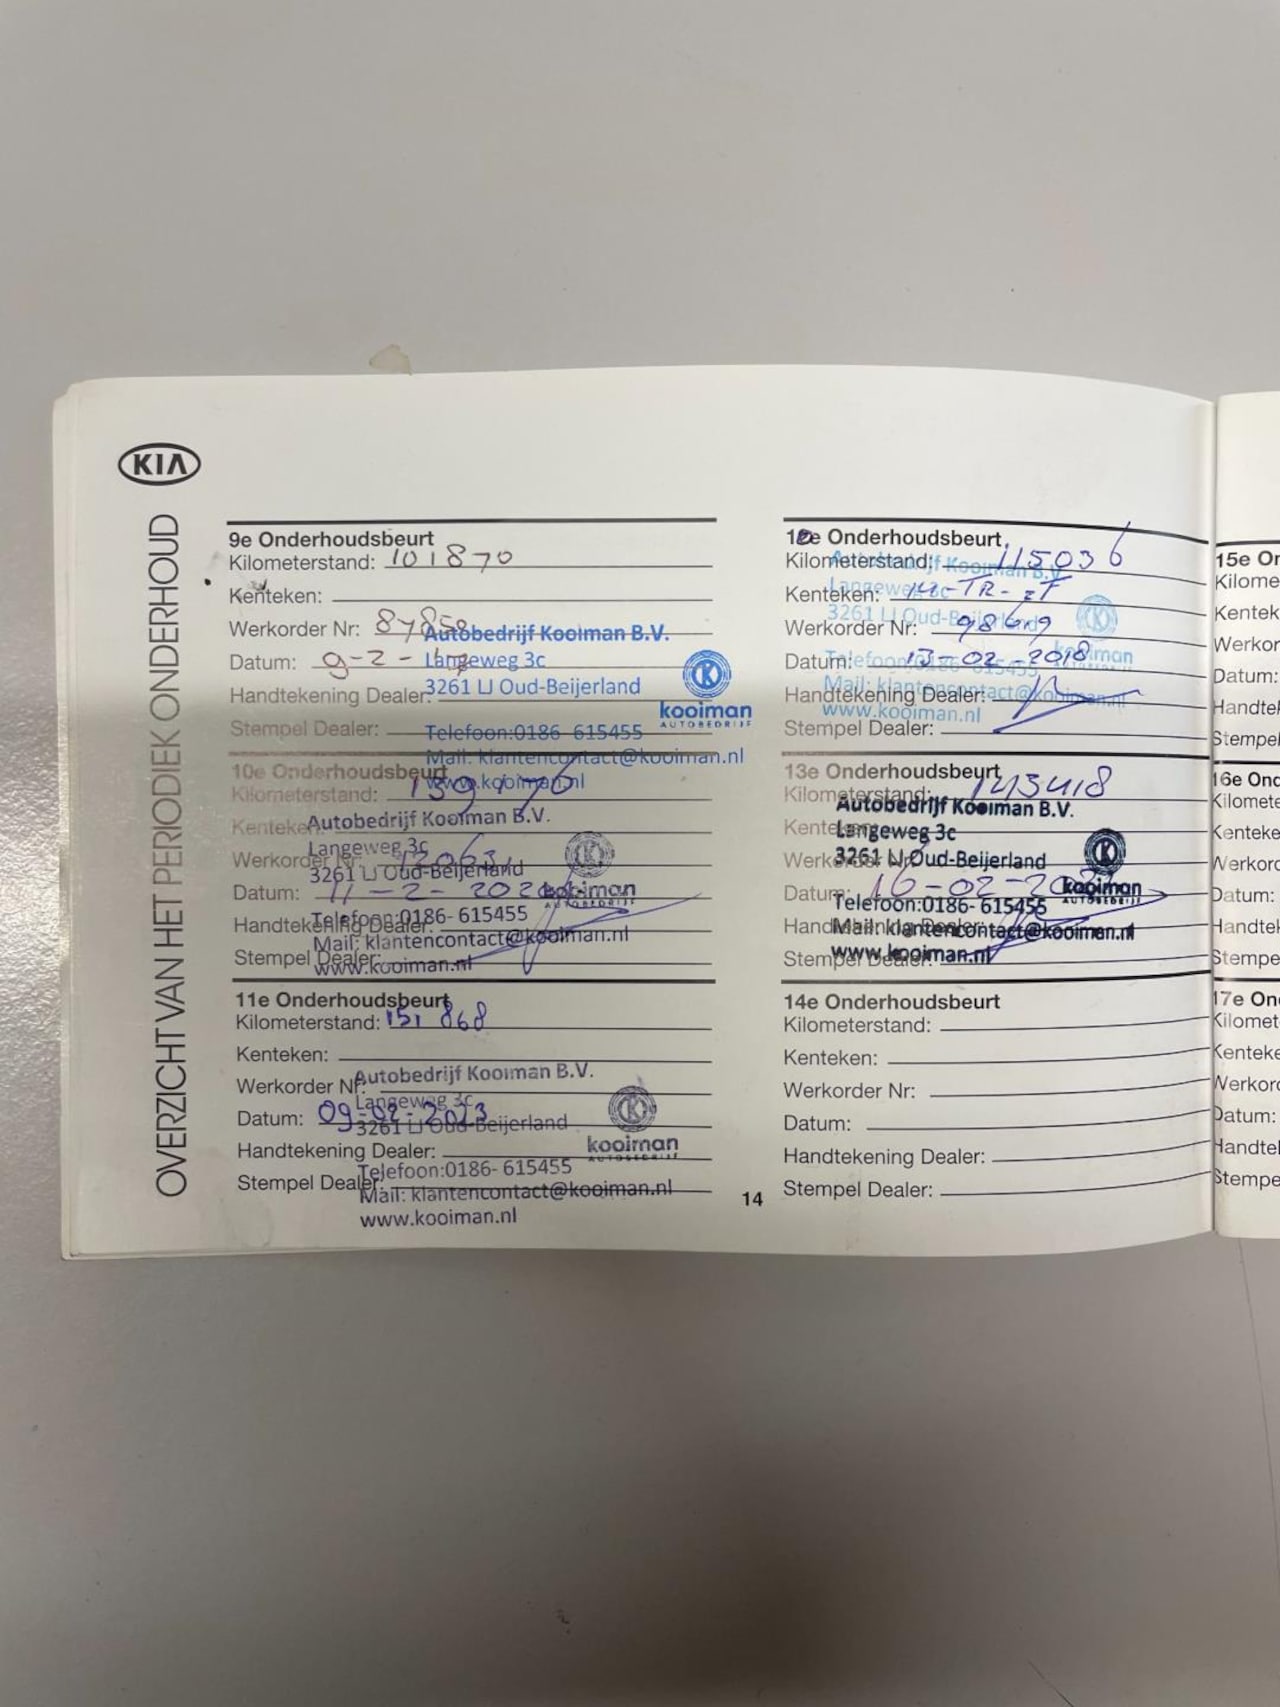 KIA
OVERZICHT VAN HET PERIODIEK ONDERHOUD
9e Onderhoudsbeurt
Kilometerstand: 101870
Kenteken:
Werkorder Nr:
Autobedrijf Kooiman B.V.
Datum: 9-2-
Langeweg 3c
Handtekening Dealer:
3261 LJ Oud-Beijerland
kooiman
AUTOBEDRIJF
Stempel Dealer:
Telefoon:0186-615455
Mail: klantencontact@kooiman.nl
www.kooiman.nl
10e Onderhoudsbeurt
Kilometerstand:
Kenteken:
Autobedrijf Kooiman B.V.
Langeweg 3c
Werkorder Nr:
3261 LJ Oud-Beijerland
Datum: 11-2-
kooiman
AUTOBEDRIJF
Handtekening Dealer:
Telefoon:0186-615455
Mail: klantencontact@kooiman.nl
Stempel Dealer:
www.kooiman.nl
11e Onderhoudsbeurt
Kilometerstand: 151 868
Kenteken:
Autobedrijf Kooiman B.V.
Werkorder Nr:
Langeweg 3c
Datum: 09-02-2023
3261 LJ Oud-Beijerland
kooiman
AUTOBEDRIJF
Handtekening Dealer:
Telefoon:0186-615455
Stempel Dealer:
Mail: klantencontact@kooiman.nl
www.kooiman.nl
Onderhoudsbeurt
Kilometerstand: 115036
Autobedrijf Kooiman B.V.
Kenteken:
Langeweg 3c
3261 LJ Oud-Beijerland
Werkorder Nr:
Datum: 13-02-2018
Telefoon:0186-615455
kooiman
Handtekening Dealer:
Mail: klantencontact@kooiman.nl
www.kooiman.nl
Stempel Dealer:
13e Onderhoudsbeurt
Kilometerstand: 143418
Autobedrijf Kooiman B.V.
Kenteken:
Langeweg 3c
Werkorder Nr:
3261 LJ Oud-Beijerland
Datum: 16-02-
kooiman
AUTOBEDRIJF
Telefoon:0186-615455
Handtekening Dealer:
Mail: klantencontact@kooiman.nl
Stempel Dealer:
www.kooiman.nl
14e Onderhoudsbeurt
Kilometerstand:
Kenteken:
Werkorder Nr:
Datum:
Handtekening Dealer:
Stempel Dealer:
14
15e On
Kilome
Kentek
Werkor
Datum:
Handtek
Stempel
16e Ond
Kilomete
Kenteke
Werkord
Datum:
Handtek
Stempe
17e On
Kilomet
Kenteke
Werkord
Datum:
Handtel
Stempe